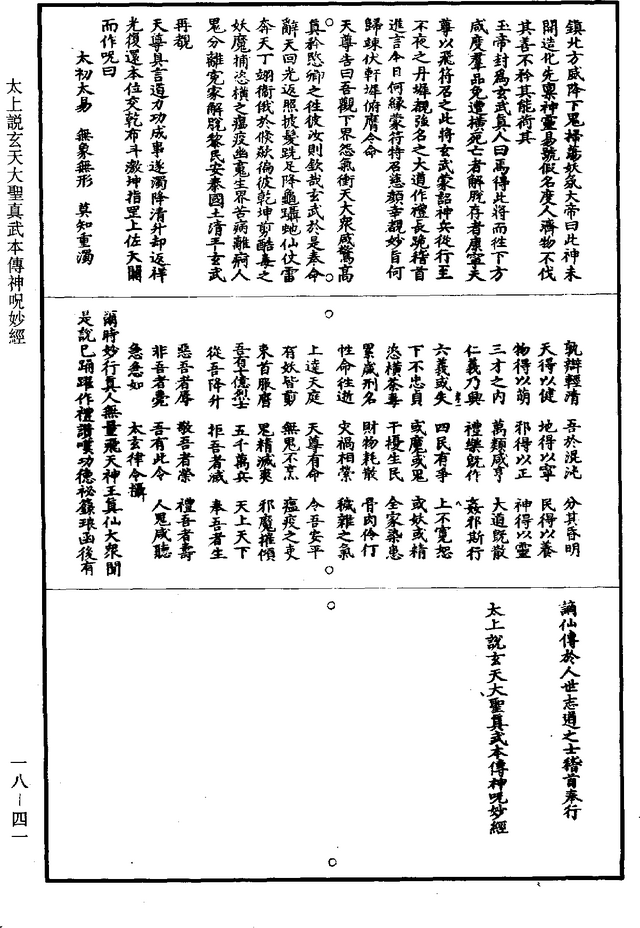 太上說玄天大聖真武本傳神呪妙經
一八－四一
鎮北方威降下鬼掃蕩妖氛大帝曰此神未
開造化先稟神靈易號假名度人濟物不伐
其善不矜其能荷其
玉帝封為玄武真人曰焉得此將而往下方
咸度羣品免遭橫死亡者解脫存者康寧天
尊以飛符召之此將玄武蒙詔神兵從行至
不夜之丹墀覩強名之大道作禮長跪稽首
進言今日何緣蒙符特召慈顏幸覩妙旨何
歸竦伏軒墀俯膺令命
天尊告曰吾觀下界怨氣衝天大眾咸驚高
真矜愍卿之往彼汝則欽哉玄武於是奉命
辭天回光返照披髮跣足降龜躡虵仙仗雷
奔天丁翊衛俄於倏歘徧彼乾坤剪酷毒之
妖魔捕恣橫之瘟疫幽寃生界苦病離痾人
鬼分離寃家解脫黎民安泰國土清平玄武
再覩
天尊具言道力功成事遂濁降清升却返祥
光復還本位交乾布斗激坤指罡上佐天關
而作呪曰
太初太易　無象無形　莫知重濁
孰辯輕清　吾於混沌　分其昏明
天得以健　地得以寧　民得以養
物得以萌　邪得以正　神得以靈
三才之內　萬類咸亨　大道旣散
仁義乃興　禮樂旣作　姦邪斯行
六義或失　四民有爭　上不寬恕
下不忠貞　或魔或鬼　或妖或精
恣橫荼毒　干擾生民　全家染患
累歲刑名　財物耗散　骨肉伶仃
性命往逝　灾禍相縈　穢雜之氣
上達天庭　天尊有命　令吾安平
有妖皆剪　無鬼不烹　瘟疫之吏
束首服膺　鬼精滅爽　邪魔摧傾
吾有七億烈士　五千萬兵　天上天下
從吾降升　拒吾者滅　奉吾者生
惡吾者辱　敬吾者榮　禮吾者壽
非吾者薨　吾有此令　人鬼咸聽
急急如　太玄律令攝
爾時妙行真人無量飛天神王真仙大眾聞
是說已踊躍作禮讚嘆功德祕籙琅函後有
謫仙傳於人世志道之士稽首奉行
太上說玄天大聖真武本傳神呪妙經